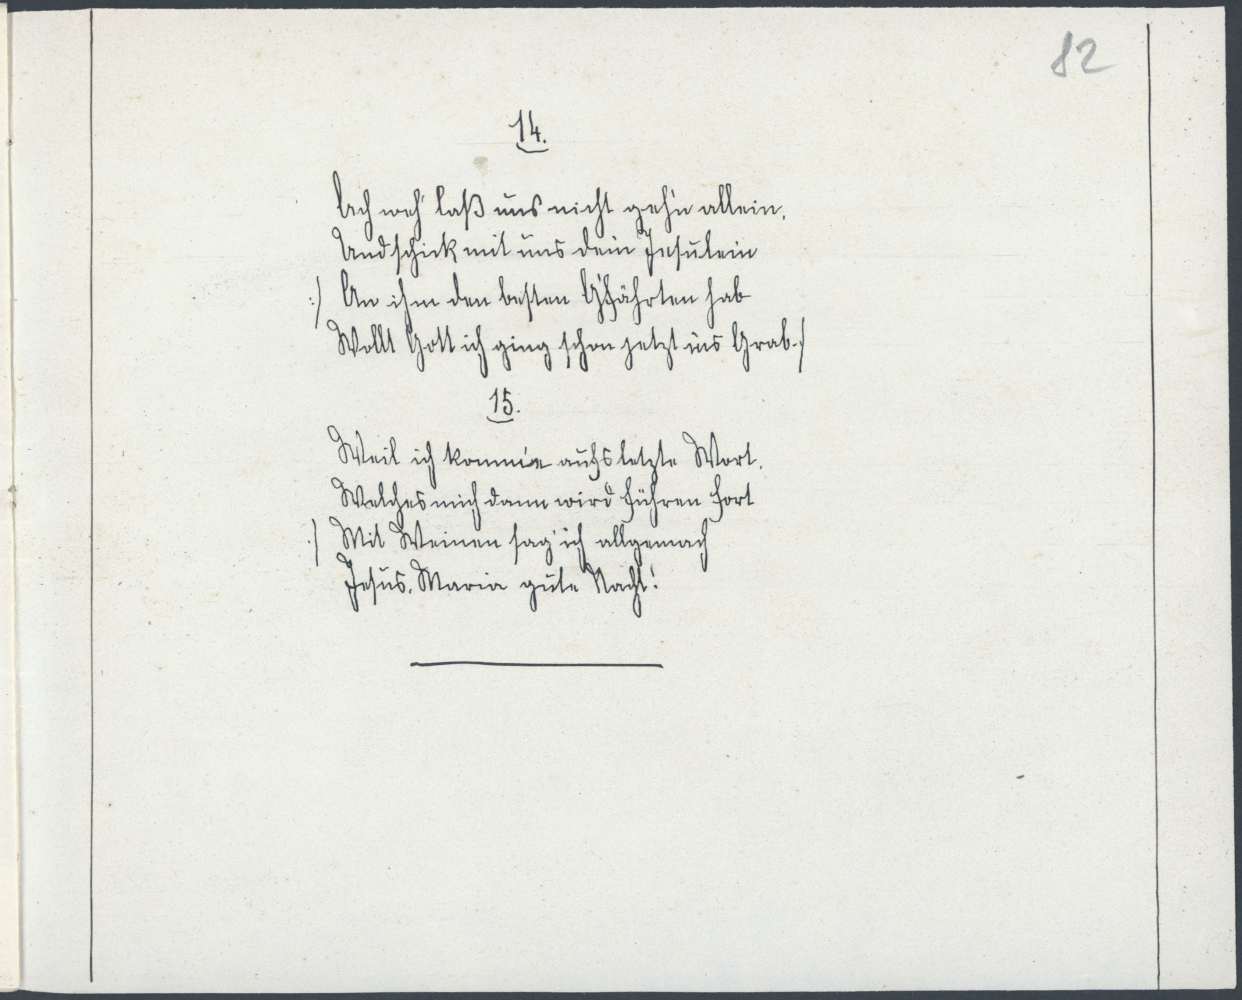 82
14.
Ach weh' laß uns nicht geh'n allein,
Und schick mit uns dein Jesulein
:/ An ihm den besten G'fährten hab
Wollt Gott ich ging schon jetzt ins Grab :/
15.
Weil ich komme aufs letzte Wort,
Welches mich dann wird führen fort
:/ Mit Weinen sag' ich allgemach
Jesus, Maria gute Nacht!